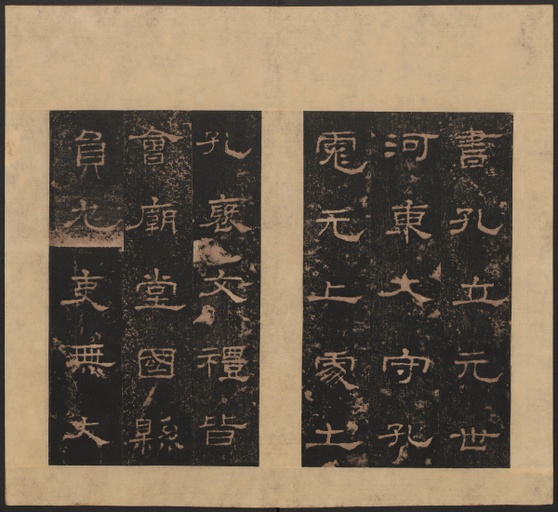 書孔立元世
河東大守孔
彪元上處士
孔襃文禮皆
會廟堂國縣
員冗吏無大